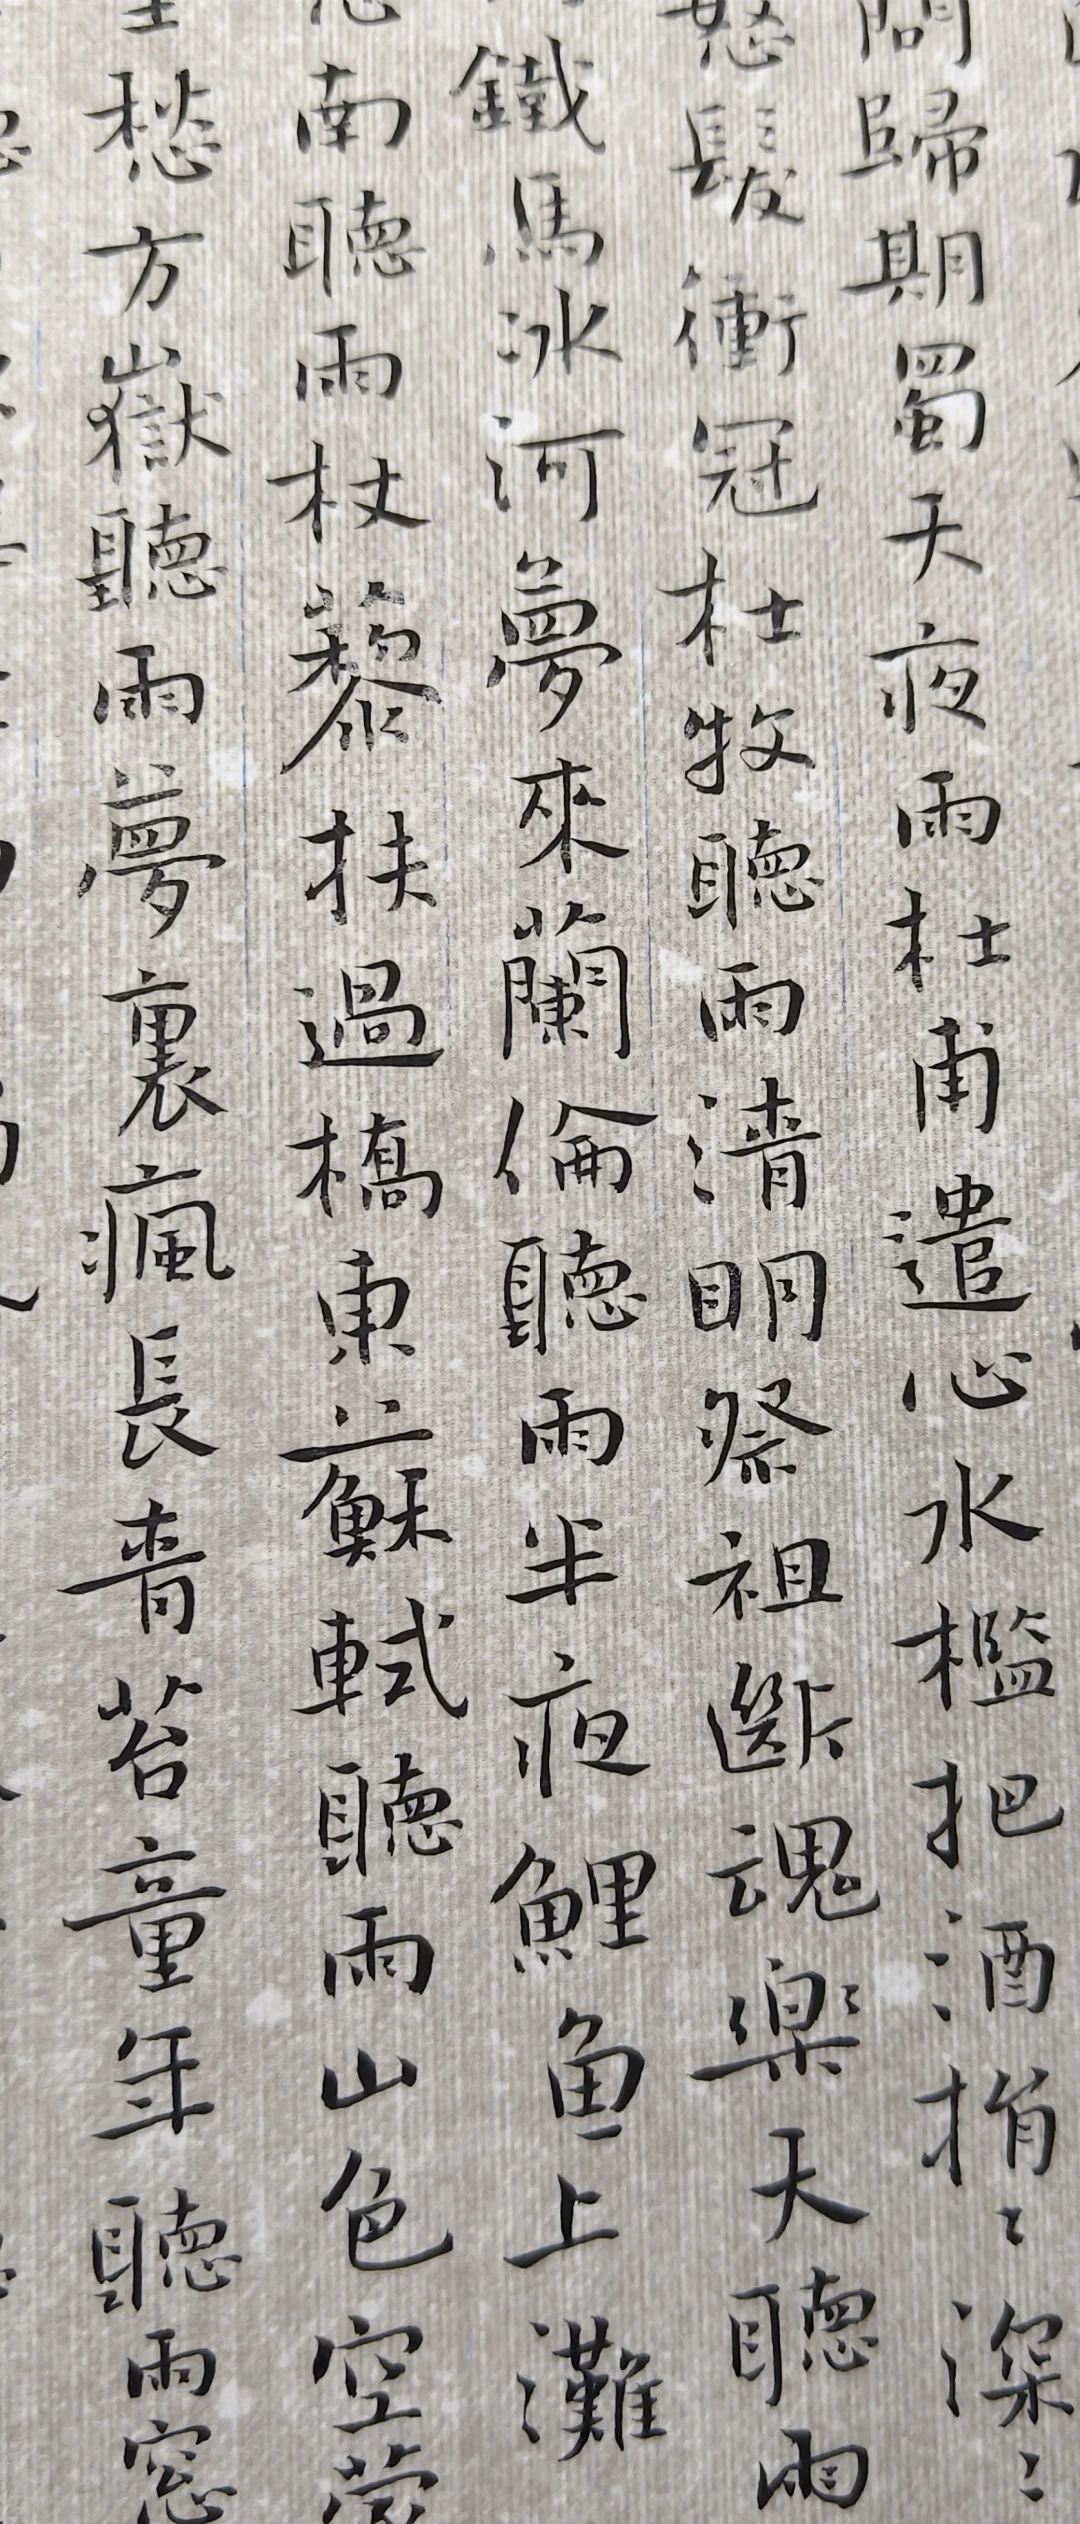 問歸期蜀天夜雨杜甫遣心水檻把酒捎〻深〻
怒髮衝冠杜牧聽雨清明祭祖斷魂樂天聽雨
鐵馬冰河夢來蘭倫聽雨半夜鯉魚上灘
南聽雨杖藜扶過橋東蘇軾聽雨山色空蒙
愁方嶽聽雨夢裏瘋長青苔童年聽雨窓